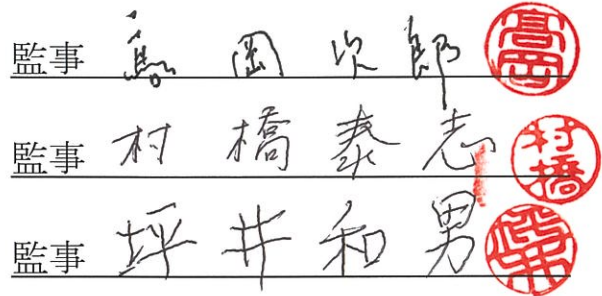 監事 髙岡次郎 髙岡
監事 村橋泰志 村橋
監事 坪井和男 坪井